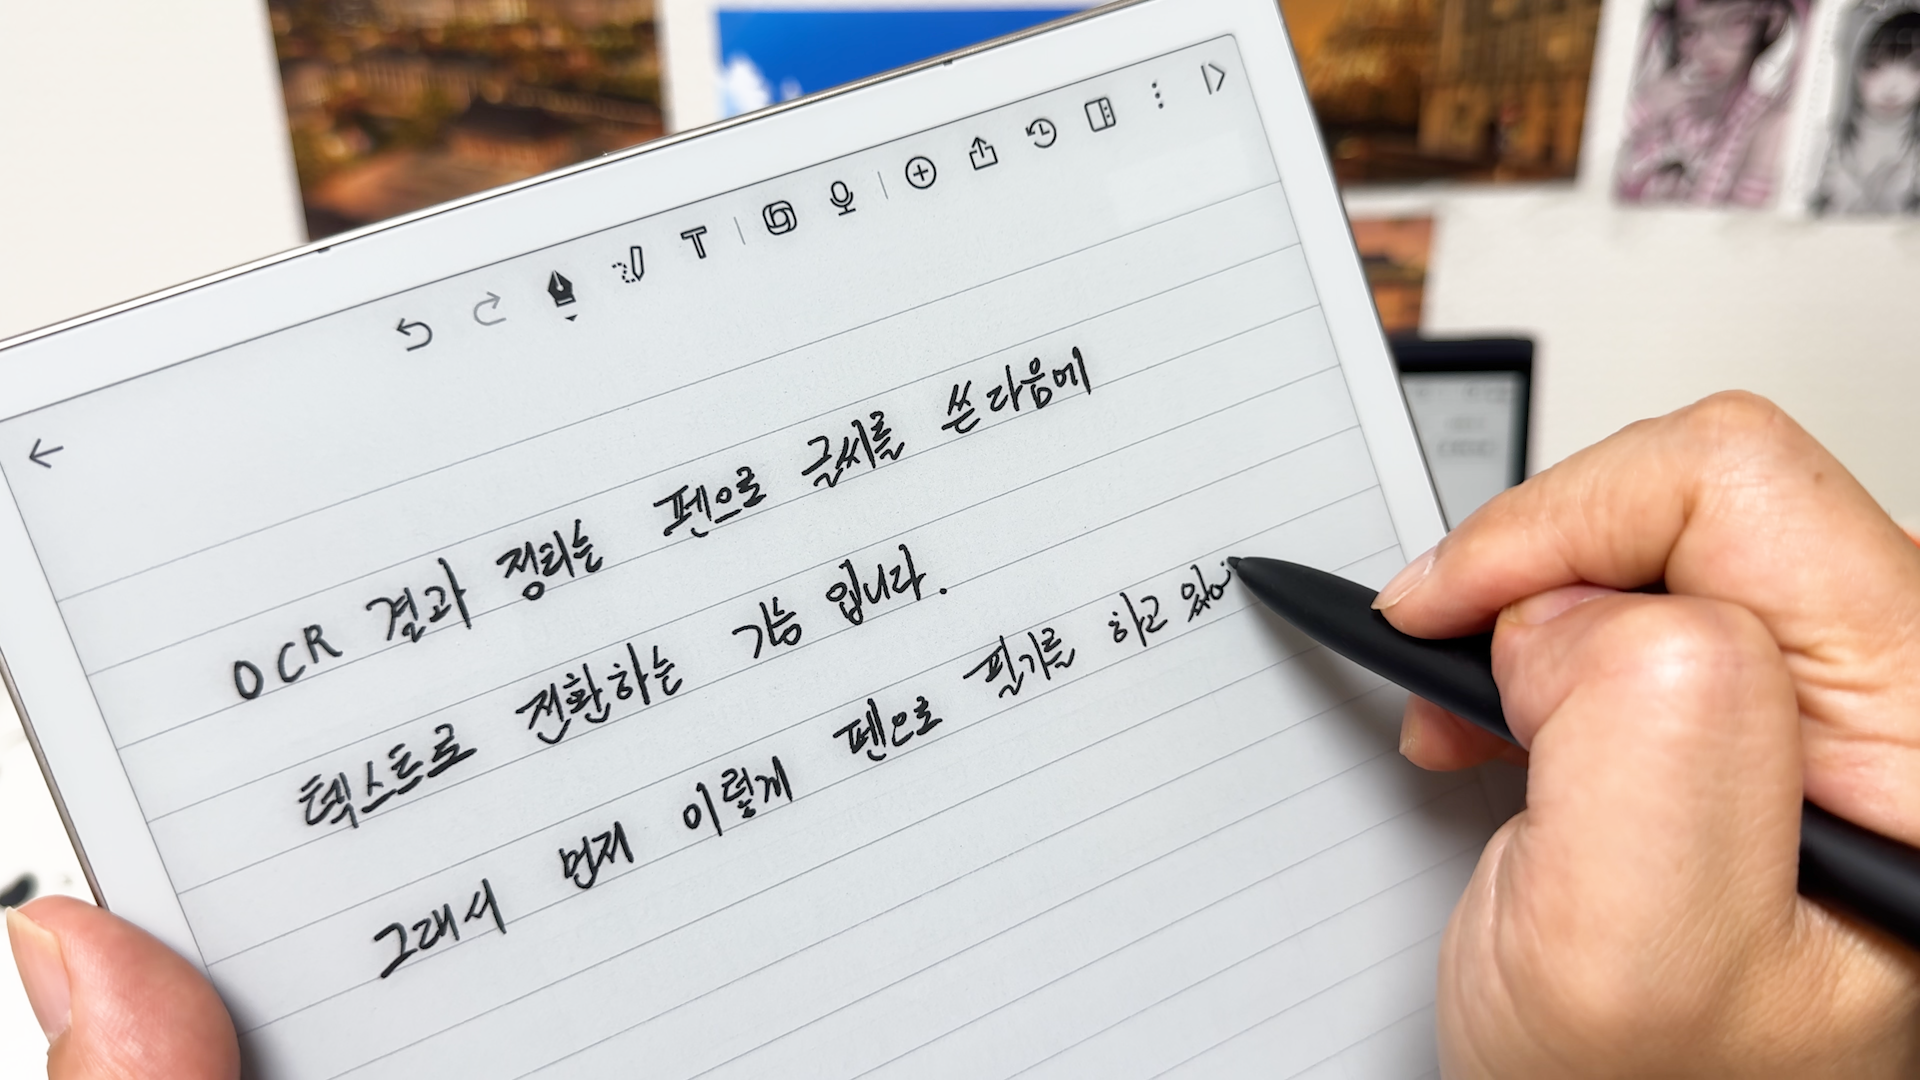 OCR 결과 정리는 펜으로 글씨를 쓴다음에
텍스트로 전환하는 기능 입니다.
그래서 먼저 이렇게 펜으로 필기를 하고